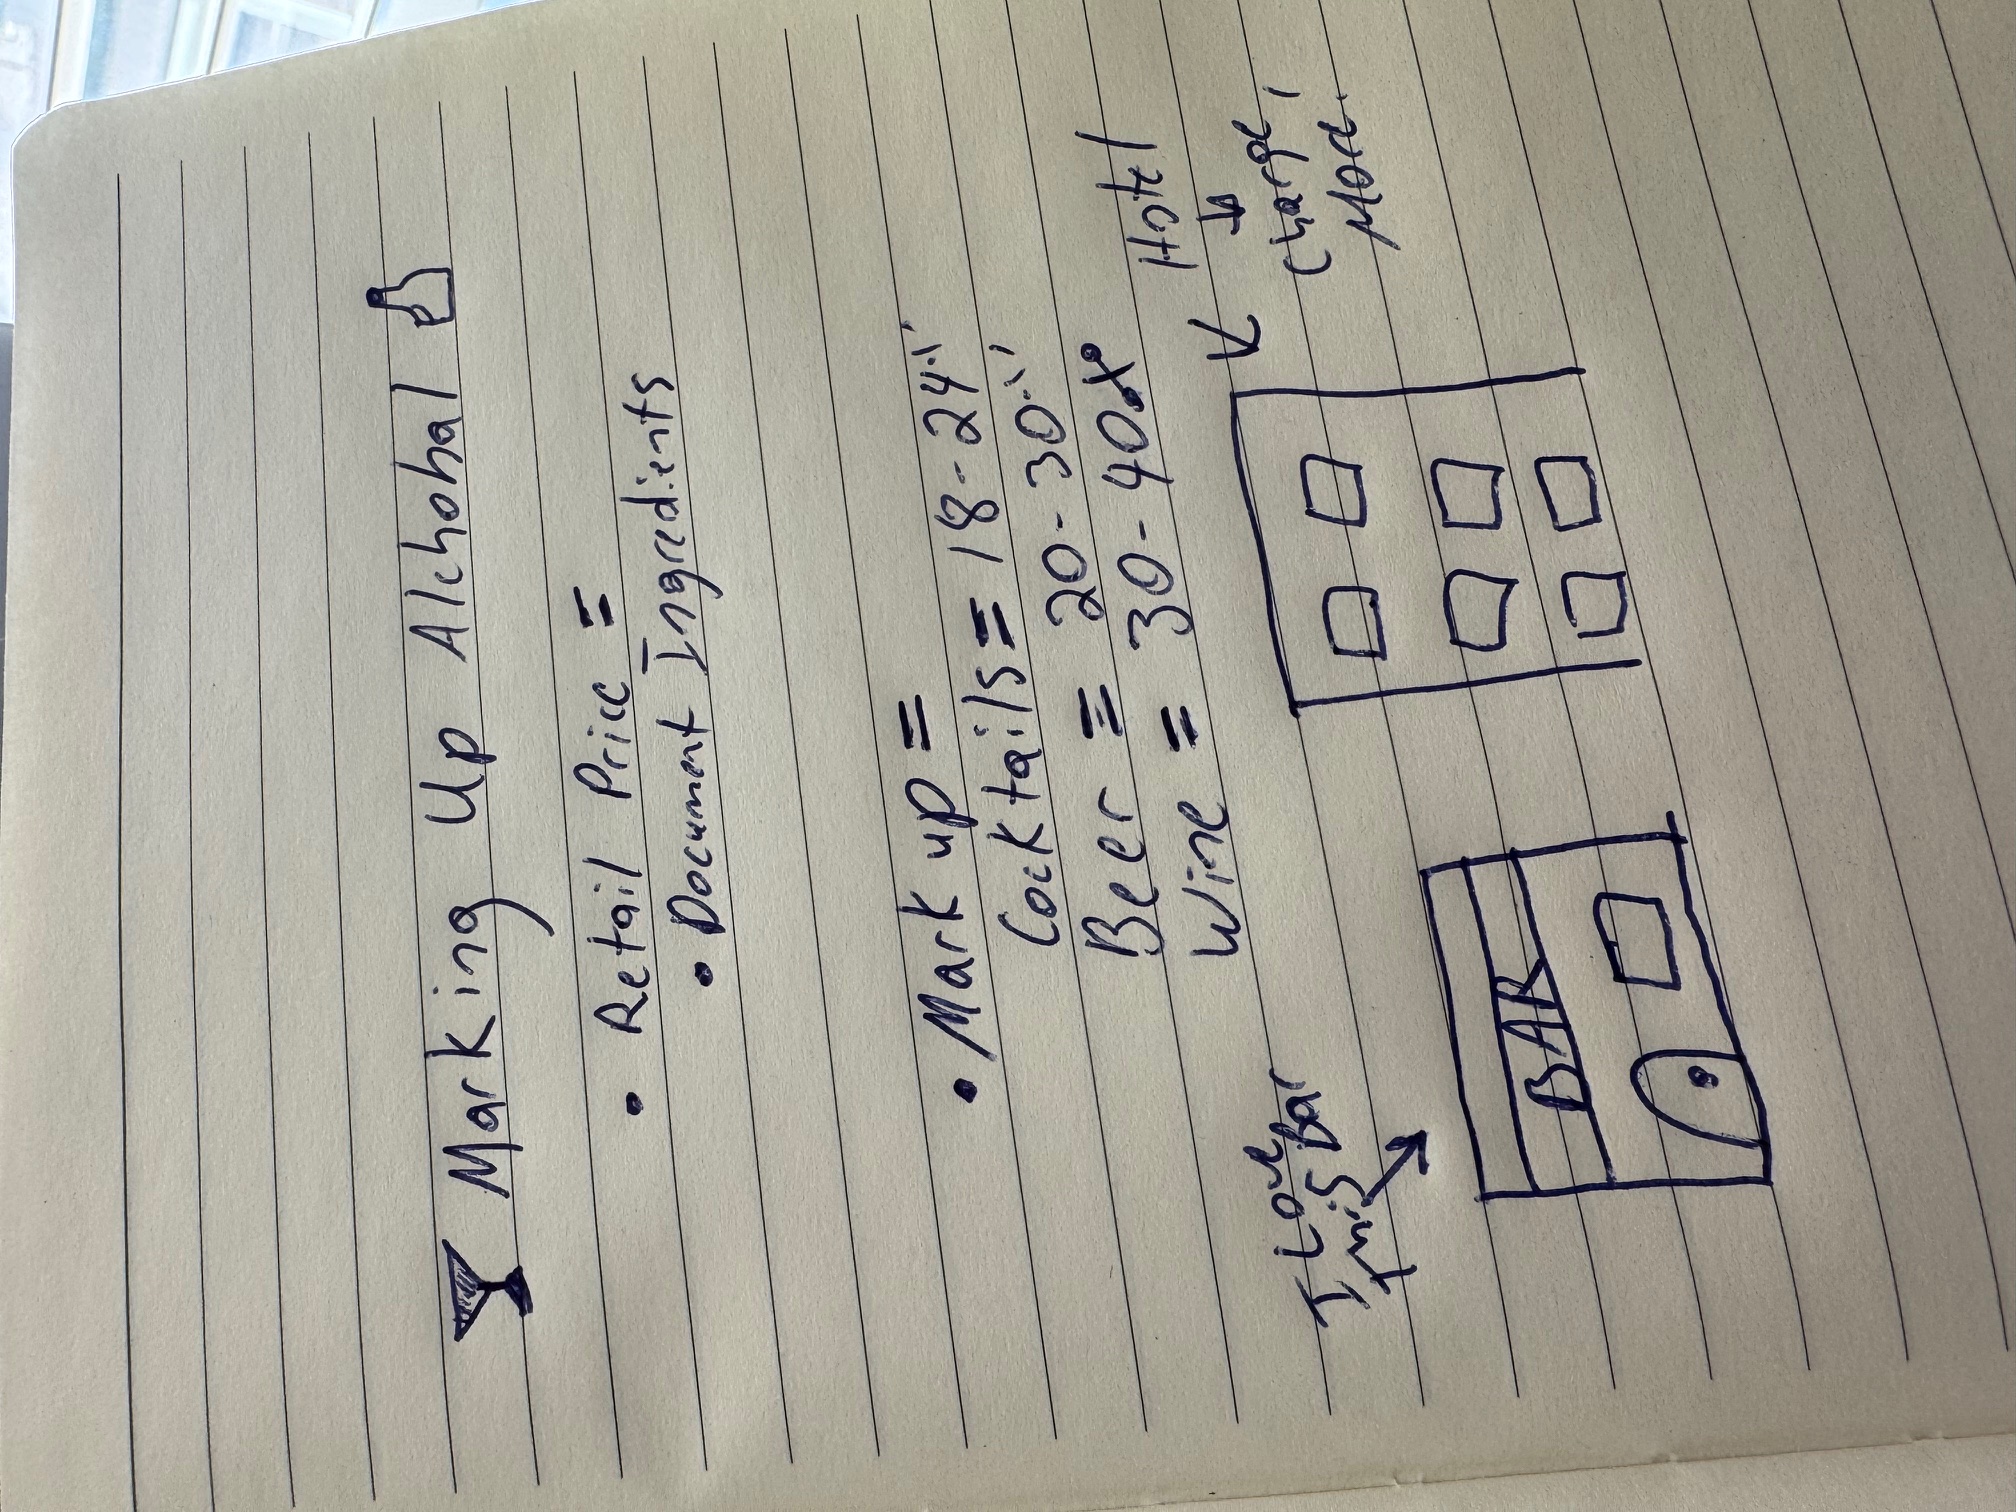 Marking Up Alchohal
• Retail Price =
• Document Ingredients
• Mark up =
Cocktails = 18-24%
Beer = 20-30%
Wine = 30-40%
I Love
This Bar
BAR
Hotel
Charge
More.